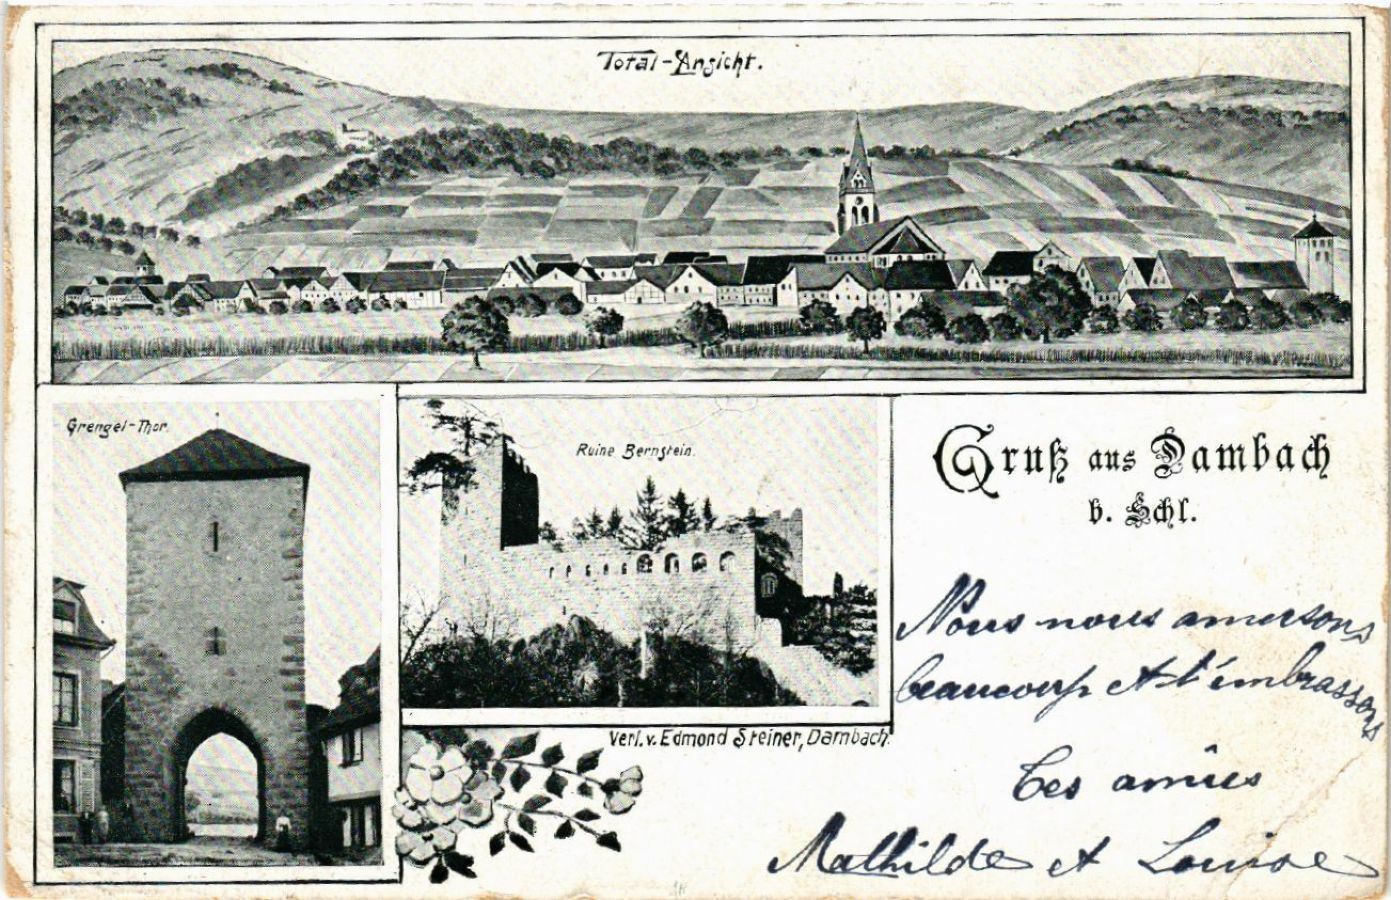 Total-Ansicht.
Grengel-Thor.
Ruine Bernstein.
Gruß aus Dambach
b. Schl.
Verl. v. Edmond Steiner, Dambach.
Nous nous amusons
beaucoup et t'embrassons
Tes amies
Mathilde et Louise